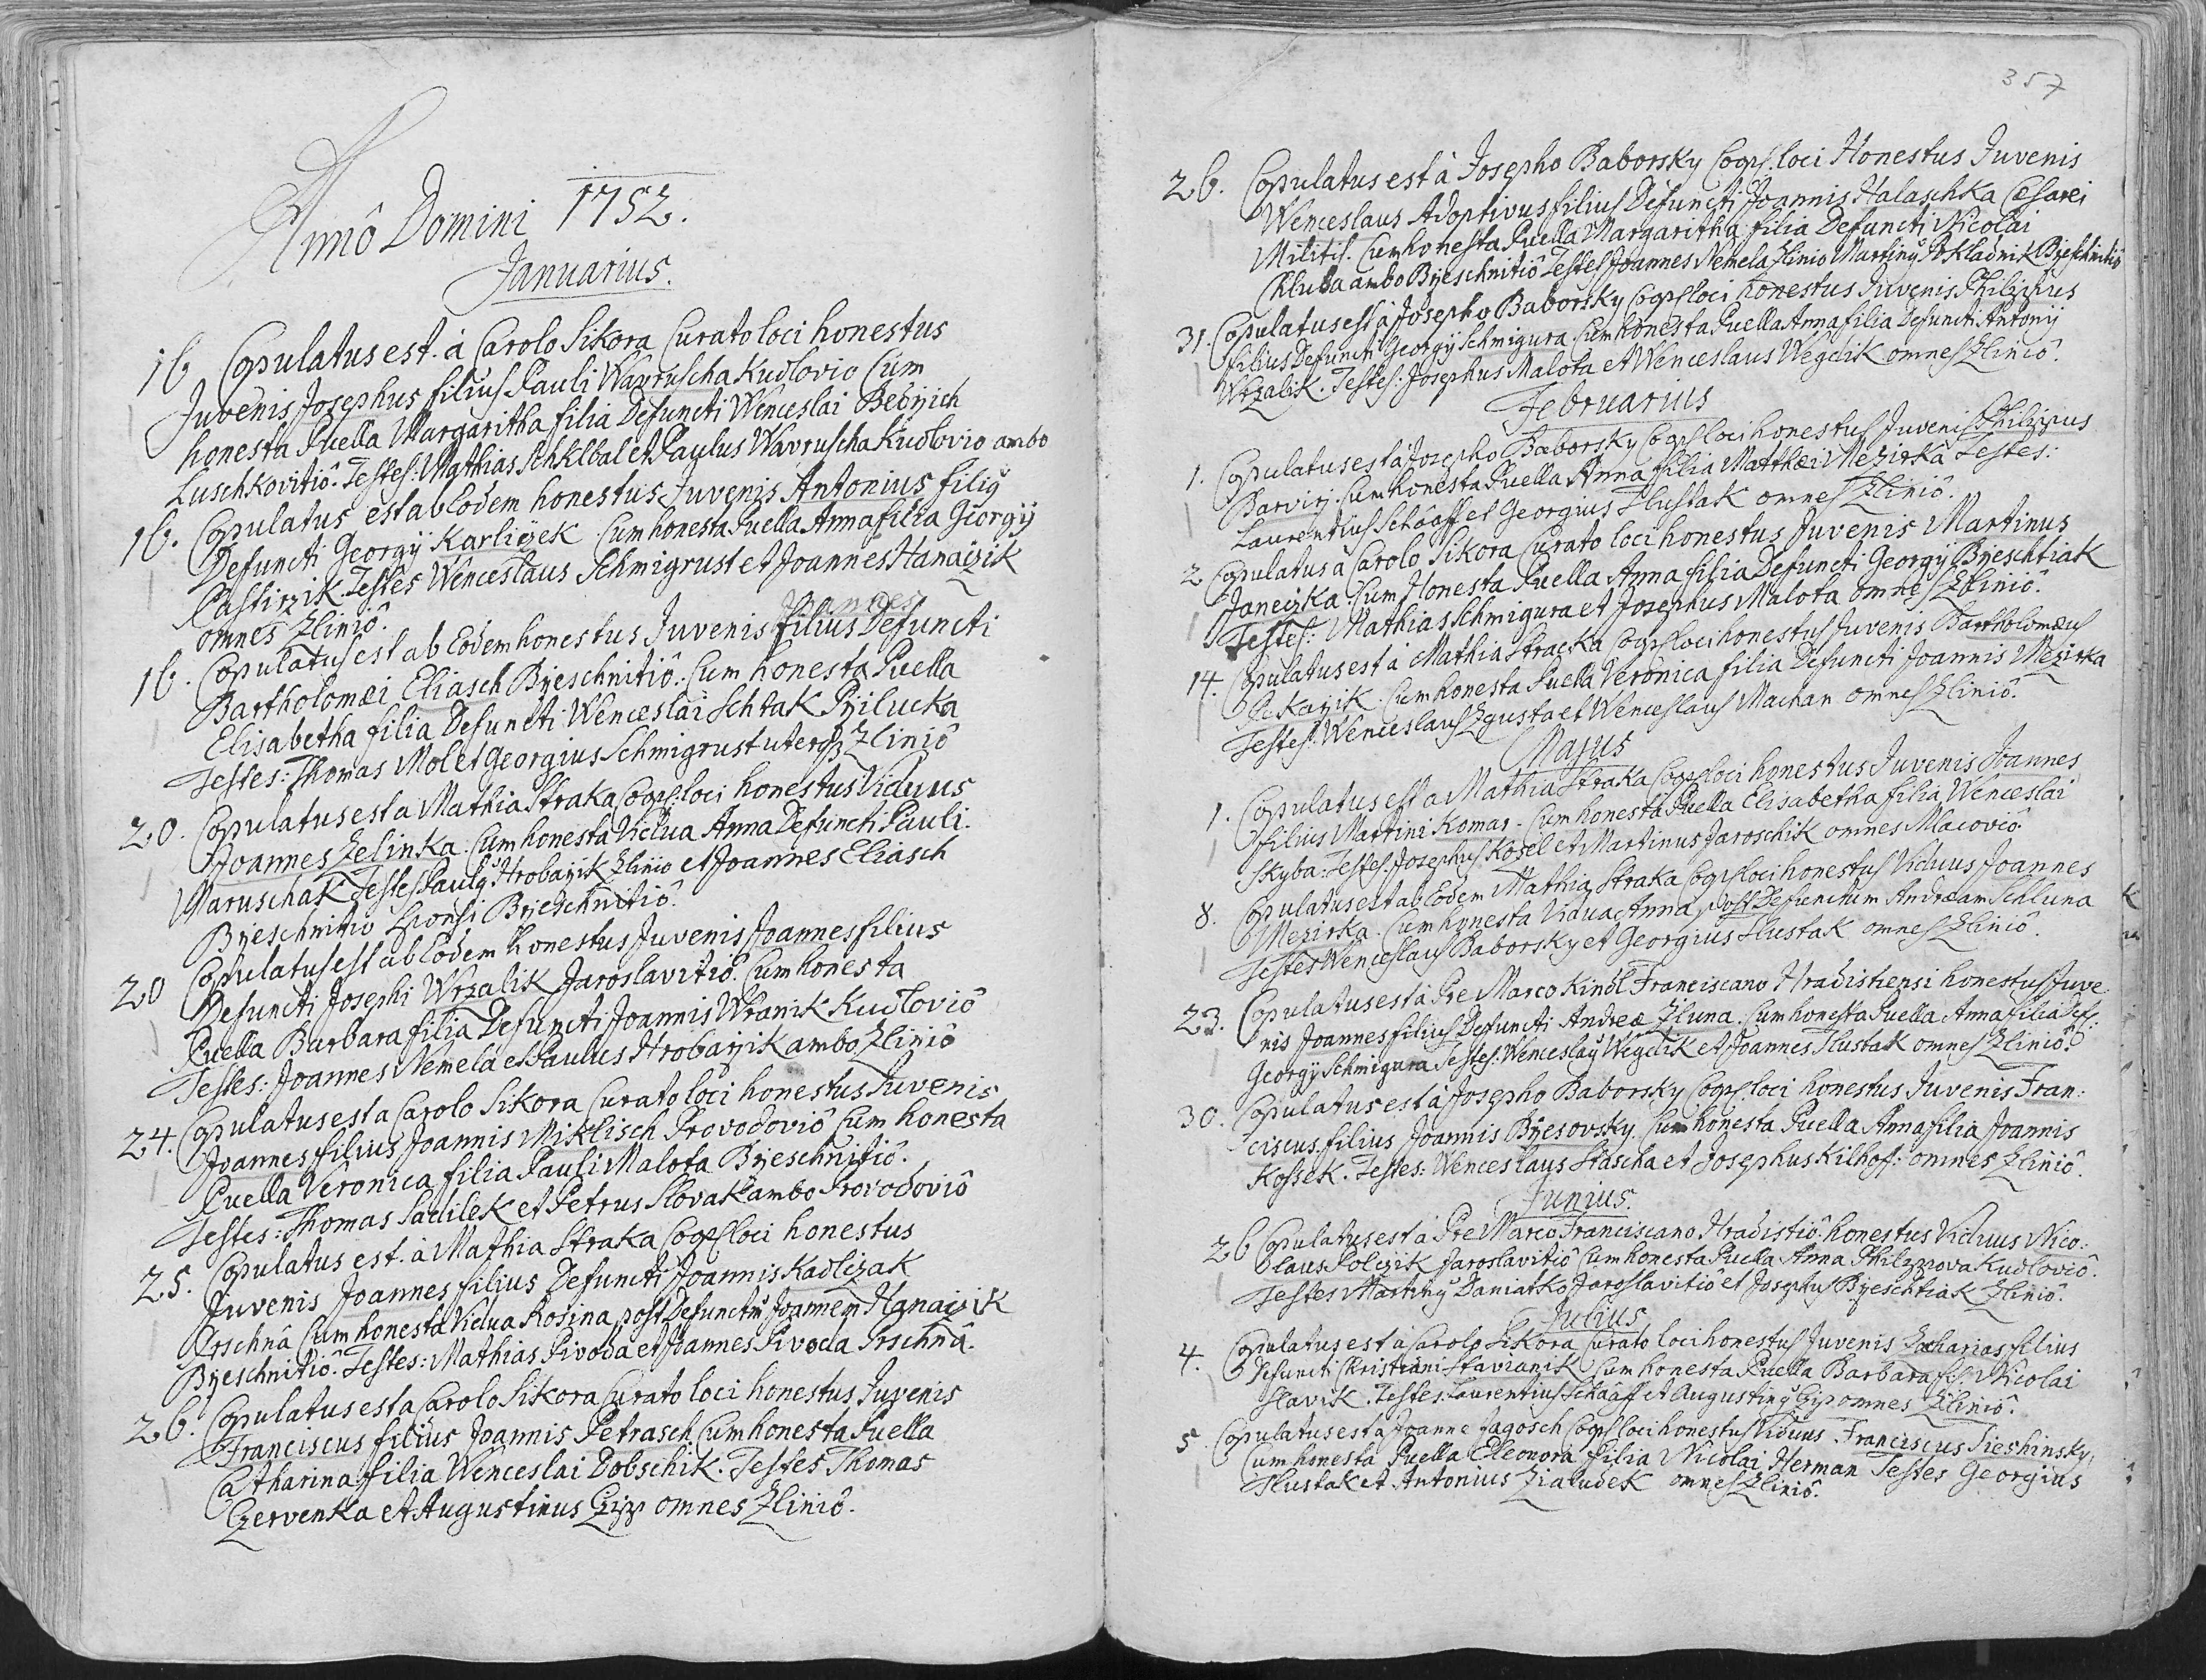 Annô Domini 1752.
Januarius.
16 Copulatus est. à Carolo Sikora Curato loci honestus
Juvenis Josephus filius Pauli Wavruscha Kudlovio Cum
honesta Puella Margaritha filia Defuncti Wenceslai
Luschkovitiô. Testes: Mathias Schklbal et Paulus Wavruscha Kudlovio ambo
16. Copulatus est ab Eodem honestus Juvenis Antonius filiȳ
Defuncti Georgij Karliczek Cum honesta Puella Anna filia Georgij
Pastirzik. Testes Wenceslaus Schmigrust et Joannes Hanaczik
omnes Zliniô.
Joannes
16. Copulatus est ab Eodem honestus Juvenis filius Defuncti
Bartholomæi Eliasch Brzeschnitiô. Cum honesta Puella
Elisabetha filia Defuncti Wenceslai Schtak Przilucka
Testes: Thomas Mol et Georgius Schmigrust uterqз Zliniô
20. Copulatus est a Mathia Straka Cogrs: loci honestus Viduus
Joannes Zelinka. Cum honesta Vidua Anna Defuncti Pauli
Maruschak Testes Paulȳ Hrobarzik Zlinio et Joannes Eliasch
Brzeschnitio Sponsi Brzeschnitiô.
20 Copulatus est ab Eodem honestus Juvenis Joannes filius
Defuncti Josephi Wrzalik Jaroslavitiô. Cum honesta
Puella Barbara filia Defuncti Joannis Wranik Kudloviô
Testes: Joannes Nemela et Paulus Hrobarzik ambo Zliniô
24. Copulatus est a Carolo Sikora Curato loci honestus Juvenis
Joannes filius Joannis Miklisch Provodoviô Cum honesta
Puella Veronica filia Pauli Malota Brzeschnitiô.
Testes: Thomas Sadilek et Petrus Slovak ambo Provodoviô
25. Copulatus est. à Mathia Straka Cogrs loci honestus
Juvenis Joannes filius Defuncti Joannis Kadlczak
Prschnâ Cum honesta Vidua Rosina post Defunctū Joannem Hanaczik
Brzeschnitiô. Testes: Mathias Pivoda et Joannes Pivoda Prschnâ.
26. Copulatus est a Carolo Sikora Curato loci honestus Juvenis
Franciscus filius Joannis Petrasch Cum honesta Puella
Catharina filia Wenceslai Dobschik. Testes Thomas
Czervenka et Augustinus Czip omnes Zliniô.
357
26. Copulatus est à Josepho Baborsky Cogrs. loci Honestus Juvenis
Wenceslaus Adoptivus filius Defuncti Joannis Halaschka Cesarei
Militis. Cum honesta Puella Margaritha filia Defuncti Nicolai
Chluba ambo Brzeschnitiô Testes Joannes Nemela Zlinio Martinȳ Pokladnik Brzeschnitiô
31. Copulatus est à Josepho Baborsky Cogrs loci honestus Juvenis Philippus
filius Defuncti Georgij Schmigura Cum honesta Puella Anna filia Defuncti Antonij
Wrzalik. Testes: Josephus Malota et Wenceslaus Wegdik omnes Zliniô.
Februarius
1. Copulatus est à Josepho Baborsky Cogrs loci honestus Juvenis Philippus
Barvirz. Cum honesta Puella Anna filia Matthæi Mezirka Testes:
Laurentius Schaaff et Georgius Tlustak omnes Zliniô.
2 Copulatus à Carolo Sikora Curato loci honestus Juvenis Martinus
Janeczka. Cum Honesta Puella Anna filia Defuncti Georgij Brzeschtiak
Testes: Mathias Schmigura et Josephus Malota omnes Zliniô.
14. Copulatus est à Mathia Stracka Cogrs loci honestus Juvenis Bartholomæus
Pekarzik. Cum honesta Puella Veronica filia Defuncti Joannis Mezirka
Testes: Wenceslaus Zgusta et Wenceslaus Machan omnes Zliniô.
Majus
1. Copulatus est a Mathia Straka Cogrs loci honestus Juvenis Joannes
filius Martini Komar. Cum honesta Puella Elisabetha filia Wenceslai
Skyba: Testes: Josephus Kosel et Martinus Jaroschik omnes Macoviô.
8. Copulatus est ab Eodem Mathia Straka Cogrs loci honestus Viduus Joannes
Mezirka. Cum honesta Vidua Anna post Defunctum Andræam Schluna
Testes Wenceslaus Baborsky et Georgius Tlustak omnes Zliniô.
23. Copulatus est à Pre Marco Kindl Franciscano Hradistiensi honestus Juve
nis Joannes filius Defuncti Andreæ Zluna. Cum honesta Puella Anna filia Def:
Georgij Schmigura Testes. Wenceslaȳ Wegdik et Joannes Tlustak omnes Zliniô.
30. Copulatus est à Josepho Baborsky Cogrs. loci honestus Juvenis Fran:
ciscus filius Joannis Brzesovsky. Cum honesta Puella Anna filia Joannis
Kossek. Testes: Wenceslaus Stascha et Josephus Kilhof: omnes Zliniô.
Junius.
26 Copulatus est à Pre Marco Franciscano Hradistiô. honestus Viduus Nico:
laus Polczik Jaroslavitiô Cum honesta Puella Anna Philippova Kudloviô.
Testes Martinȳ Daniatko Jaroslavitiô et Josephus Brzeschtiak Zliniô.
Julius
4. Copulatus est à Carolo Sikora Curato loci honestus Juvenis Zacharias filius
Defuncti Christiani Stavianik Cum honesta Puella Barbara fil. Nicolai
Slavik. Testes. Laurentius Schaaff et Augustinȳ Czip omnes Zliniô.
5. Copulatus est à Joanne Jagosch Cogrs loci honestus Viduus Franciscus Tieshinsky,
Cum honesta Puella Eleonora filia Nicolai Herman Testes Georgius
Tlustak et Antonius Zialudek omnes Zliniô.